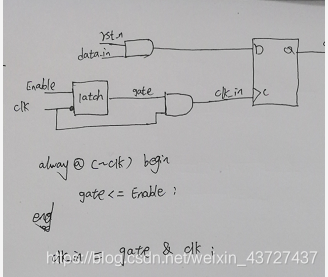 rst_n
data_in
D
Q
Enable
clk
latch
gate
clk_in
C
always @ (~clk) begin
gate <= Enable ;
end
clk_in = gate & clk ;
https://blog.csdn.net/weixin_43727437